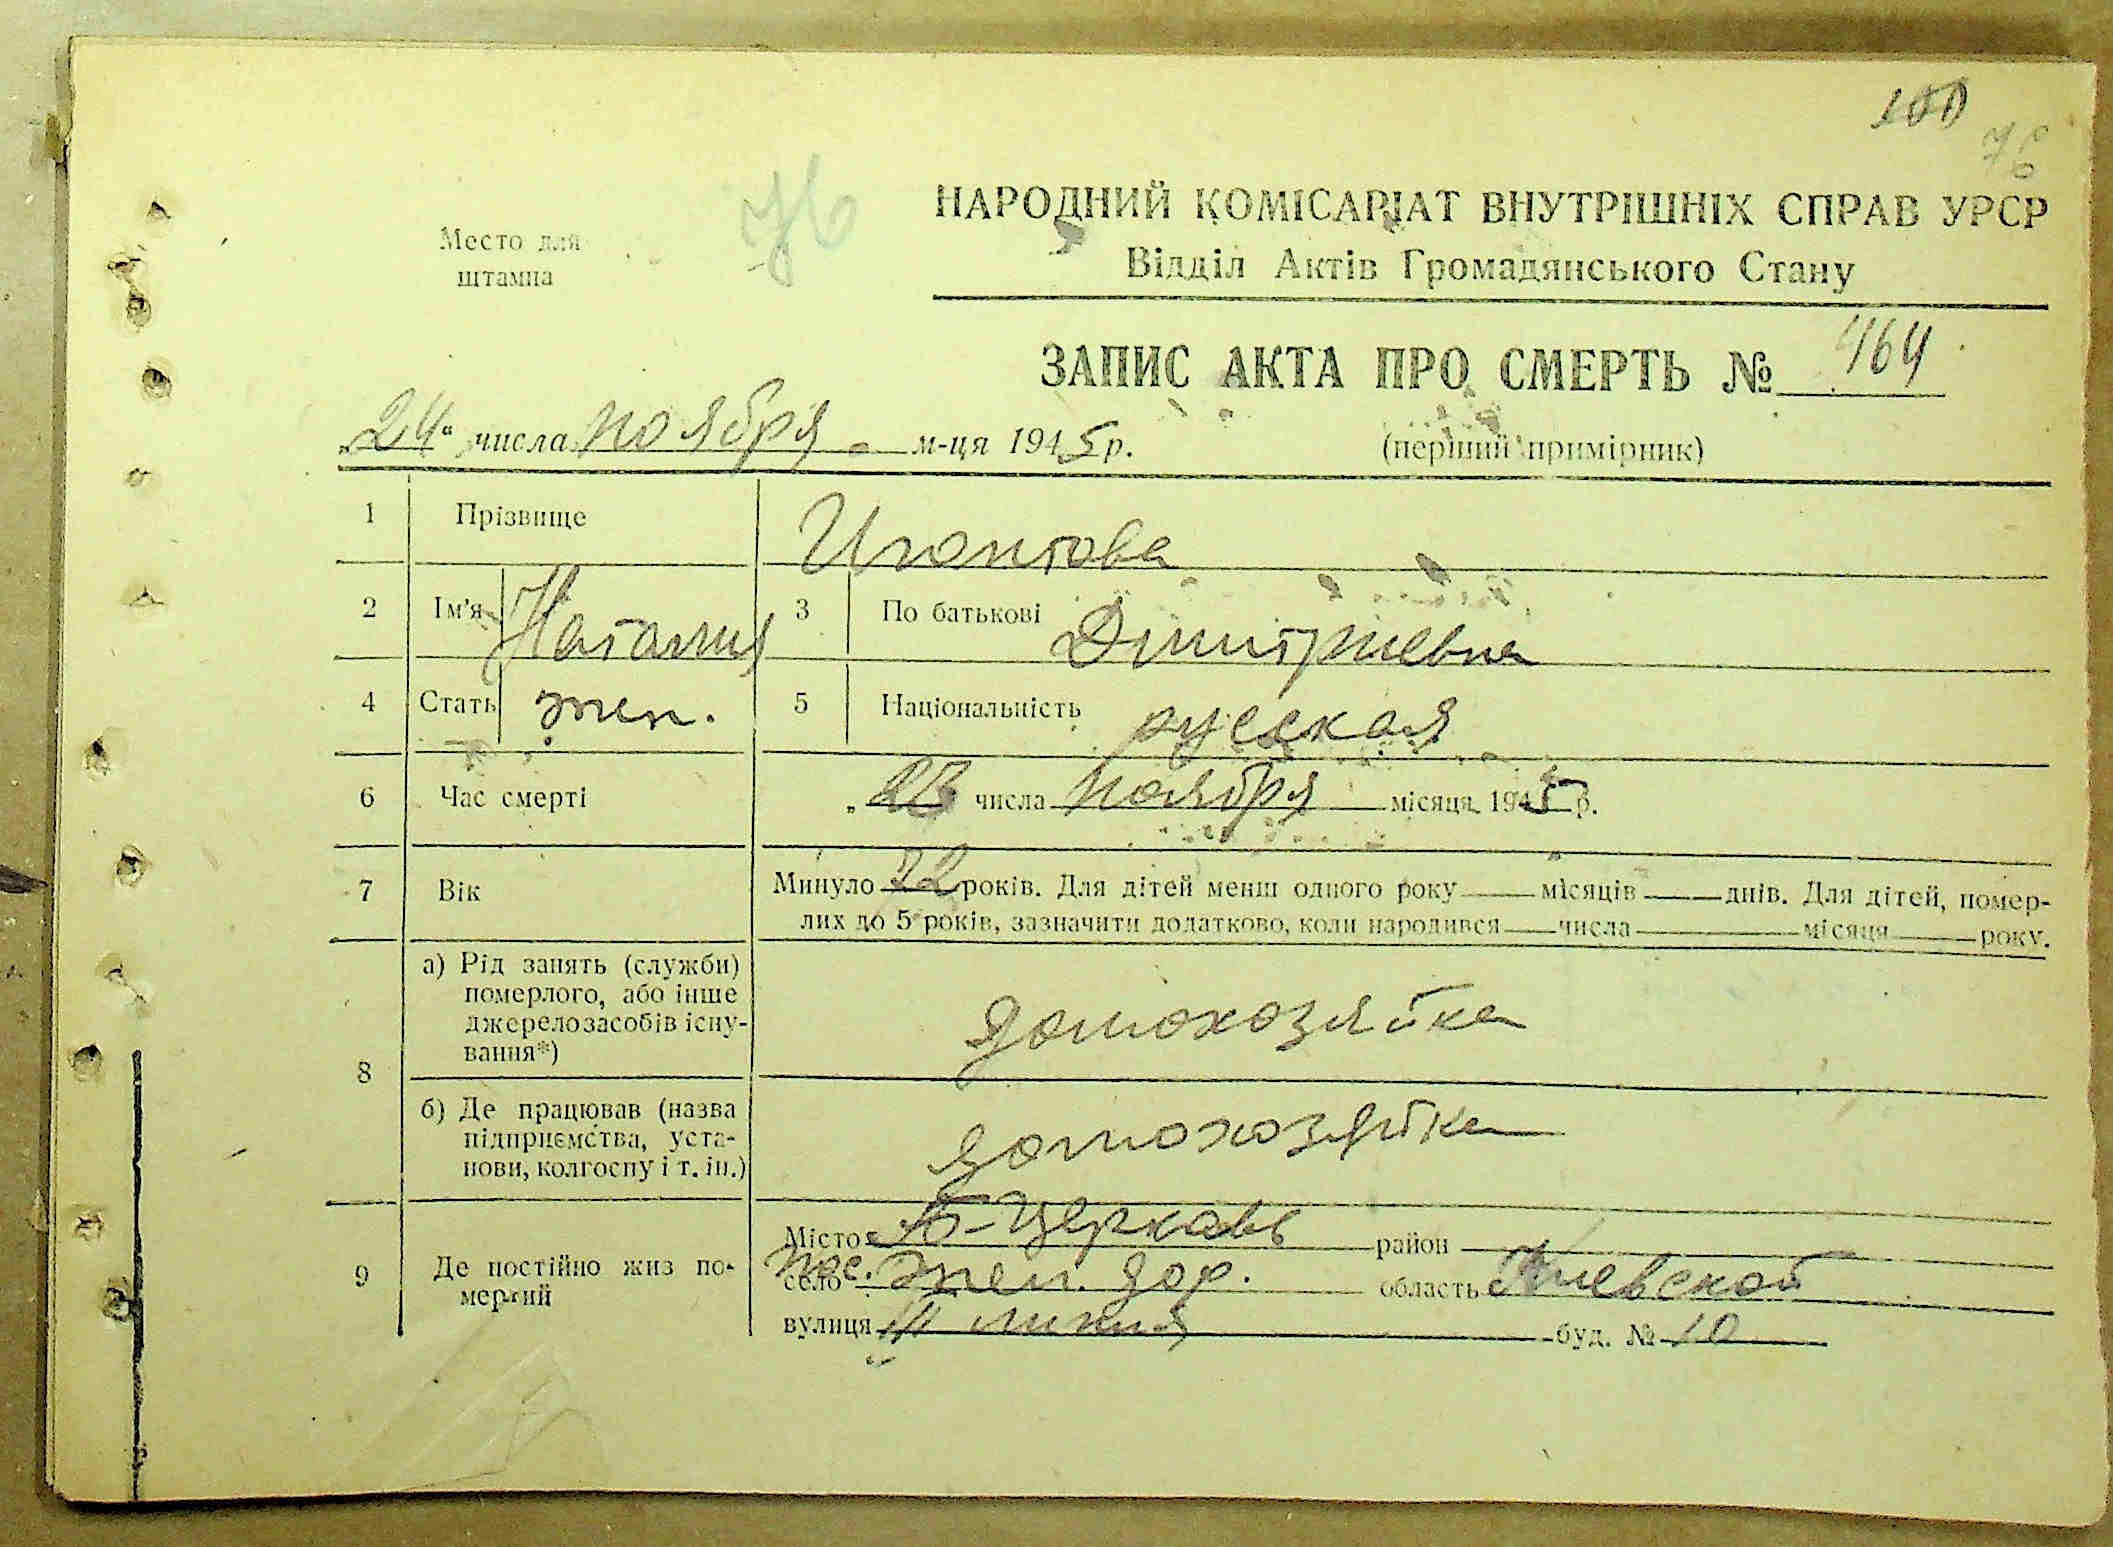 100
76
76
Место для
штампа
НАРОДНИЙ КОМІСАРІАТ ВНУТРІШНІХ СПРАВ УРСР
Відділ Актів Громадянського Стану
ЗАПИС АКТА ПРО СМЕРТЬ № 464
„24“ числа ноября м-ця 1945 р.
(перший примірник)
1 Прізвище Игоптова
2 Ім'я Наталия 3 По батькові Дмитриевна
4 Стать жен. 5 Національність русская
6 Час смерті „23 числа ноября місяця 1945 р.
7 Вік Минуло 72 років. Для дітей менш одного року місяців днів. Для дітей, помер-
лих до 5 років, зазначити додатково, коли народився числа місяця року.
8 а) Рід занять (служби)
померлого, або інше
джерело засобів існу-
вання*)
домохозяйка
б) Де працював (назва
підприємства, уста-
нови, колгоспу і т. ін.)
домохозяйка
9 Де постійно жив по-
мерлий
Місто Б-Церковь район
пос.
село жел. дор. область Киевской
вулиця III линия буд. № 10